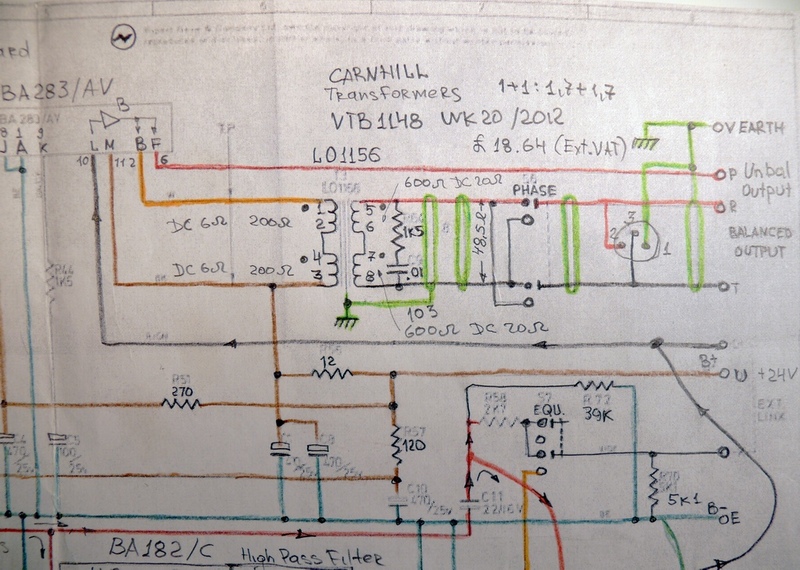 6
7
BA283/AV
CARNHILL
1+1:1,7+1,7
Transformers
VTB1148 WK20/2012
£ 18.64 (Ext.VAT)
LO1156
B
BA 283/AV
8 1 9
J A K
L M B F
10 11 2 6
OV EARTH
P Unbal
Output
R
BALANCED
OUTPUT
T
600Ω DC 20Ω
PHASE
LO1156
DC 6Ω 200Ω
1 5
2 6
1K5
48,5Ω
3
2
1
DC 6Ω 200Ω
4 7
3 8
.01
103
600Ω DC 20Ω
R44
1K5
B+
U +24V
12
R51
270
R57
120
R58
2K7
S7
EQU.
R72
39K
EXT.
LINK
470/25v
C5
100/25v
470/25v
C10
470/25v
C11
22/16V
R70
5K1
5K1
B-
E
BA182/C High Pass Filter